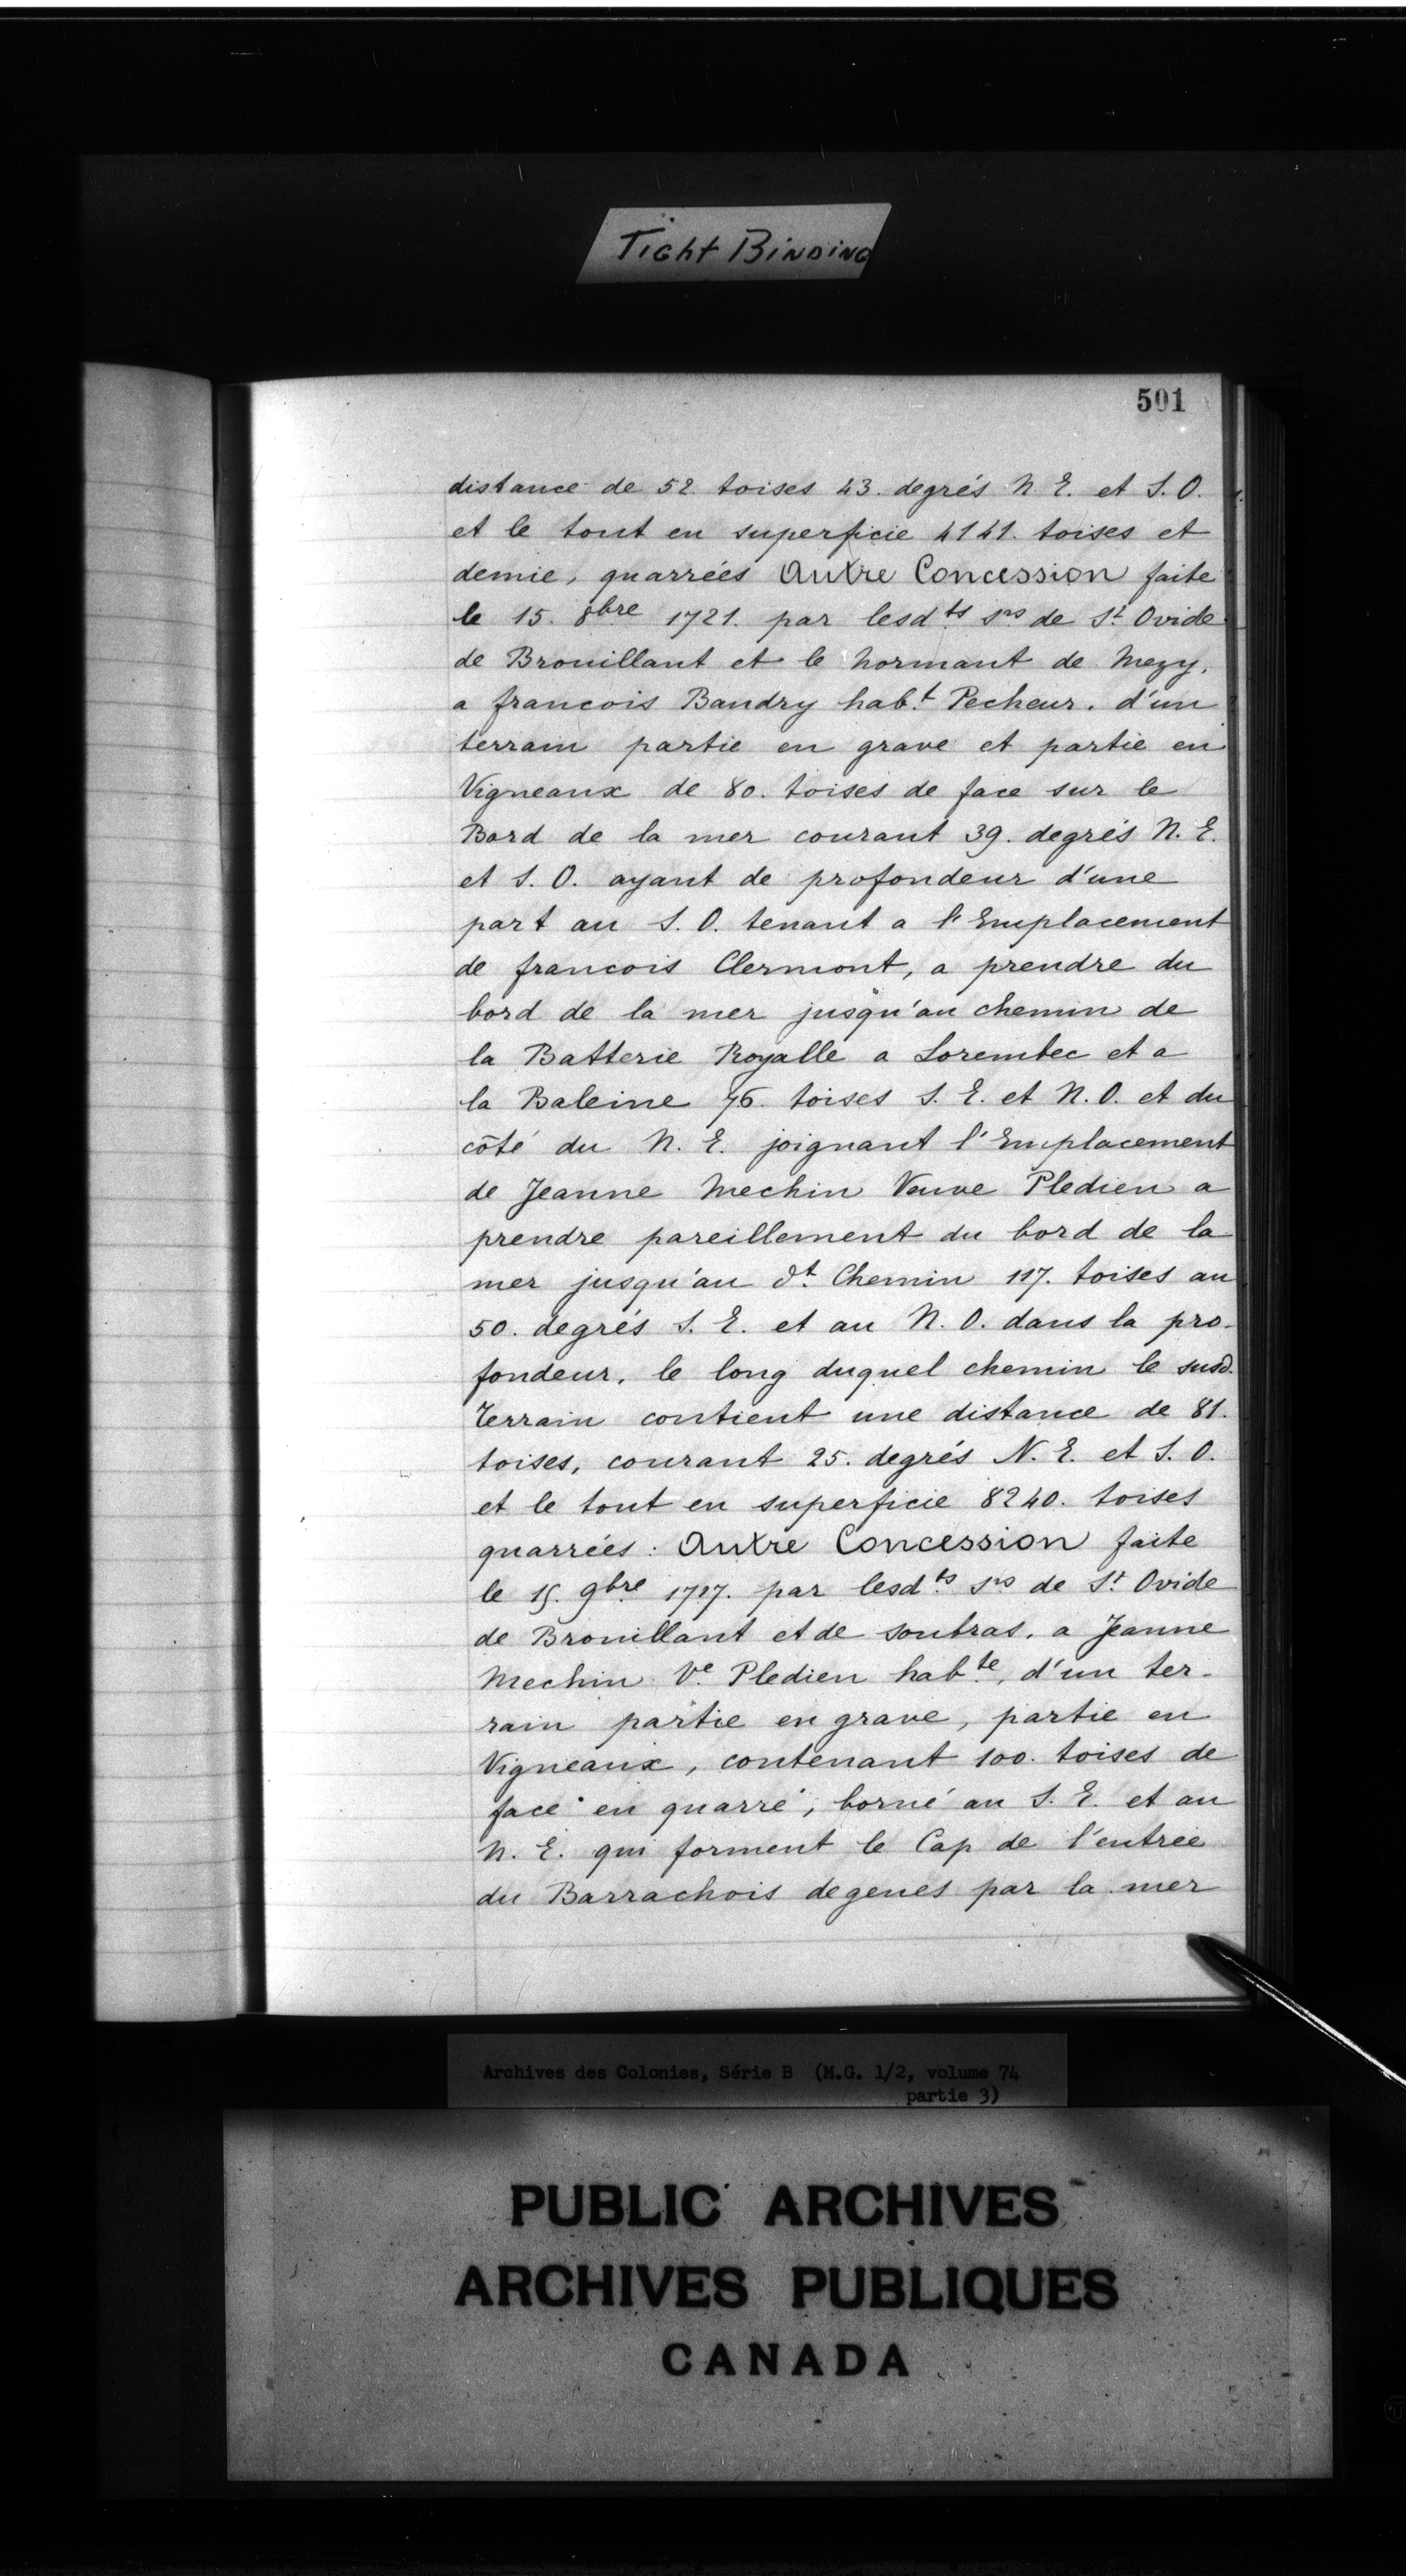 Tight Binding
501
distance de 52 toises 43. degrés N. E. et S. O.
et le tout en superficie 4141. toises et
demie, quarrées Autre Concession faite
le 15. 8bre 1721. par lesdts srs de St Ovide
de Brouillant et le Normant de Mezy,
a francois Baudry habt Pecheur. d'un
terrain partie en grave et partie en
Vigneaux de 80. toises de face sur le
Bord de la mer courant 39. degrés N. E.
et S. O. ayant de profondeur d'une
part au S. O. tenant a l'Emplacement
de francois Clermont, a prendre du
bord de la mer jusqu'au chemin de
la Batterie Royalle a Lorembec et a
la Baleine 76. toises S. E. et N. O. et du
côté du N. E. joignant l'Emplacement
de Jeanne Mechin Veuve Pledien a
prendre pareillement du bord de la
mer jusqu'au dt Chemin 117. toises au
50. degrés S. E. et au N. O. dans la pro-
fondeur, le long duquel chemin le susd.
Terrain contient une distance de 81.
toises, courant 25. degrés N. E. et S. O.
et le tout en superficie 8240. toises
quarrées : Autre Concession faite
le 15. 9bre 1717. par lesdts srs de St Ovide
de Brouillant et de soubras, a Jeanne
Mechin Ve Pledien habte, d'un ter-
rain partie en grave, partie en
Vigneaux, contenant 100. toises de
face en quarré, borné au S. E. et au
N. E. qui forment le Cap de l'entrée
du Barrachois degenes par la mer
Archives des Colonies, Série B (M.G. 1/2, volume 74
partie 3)
PUBLIC ARCHIVES
ARCHIVES PUBLIQUES
CANADA